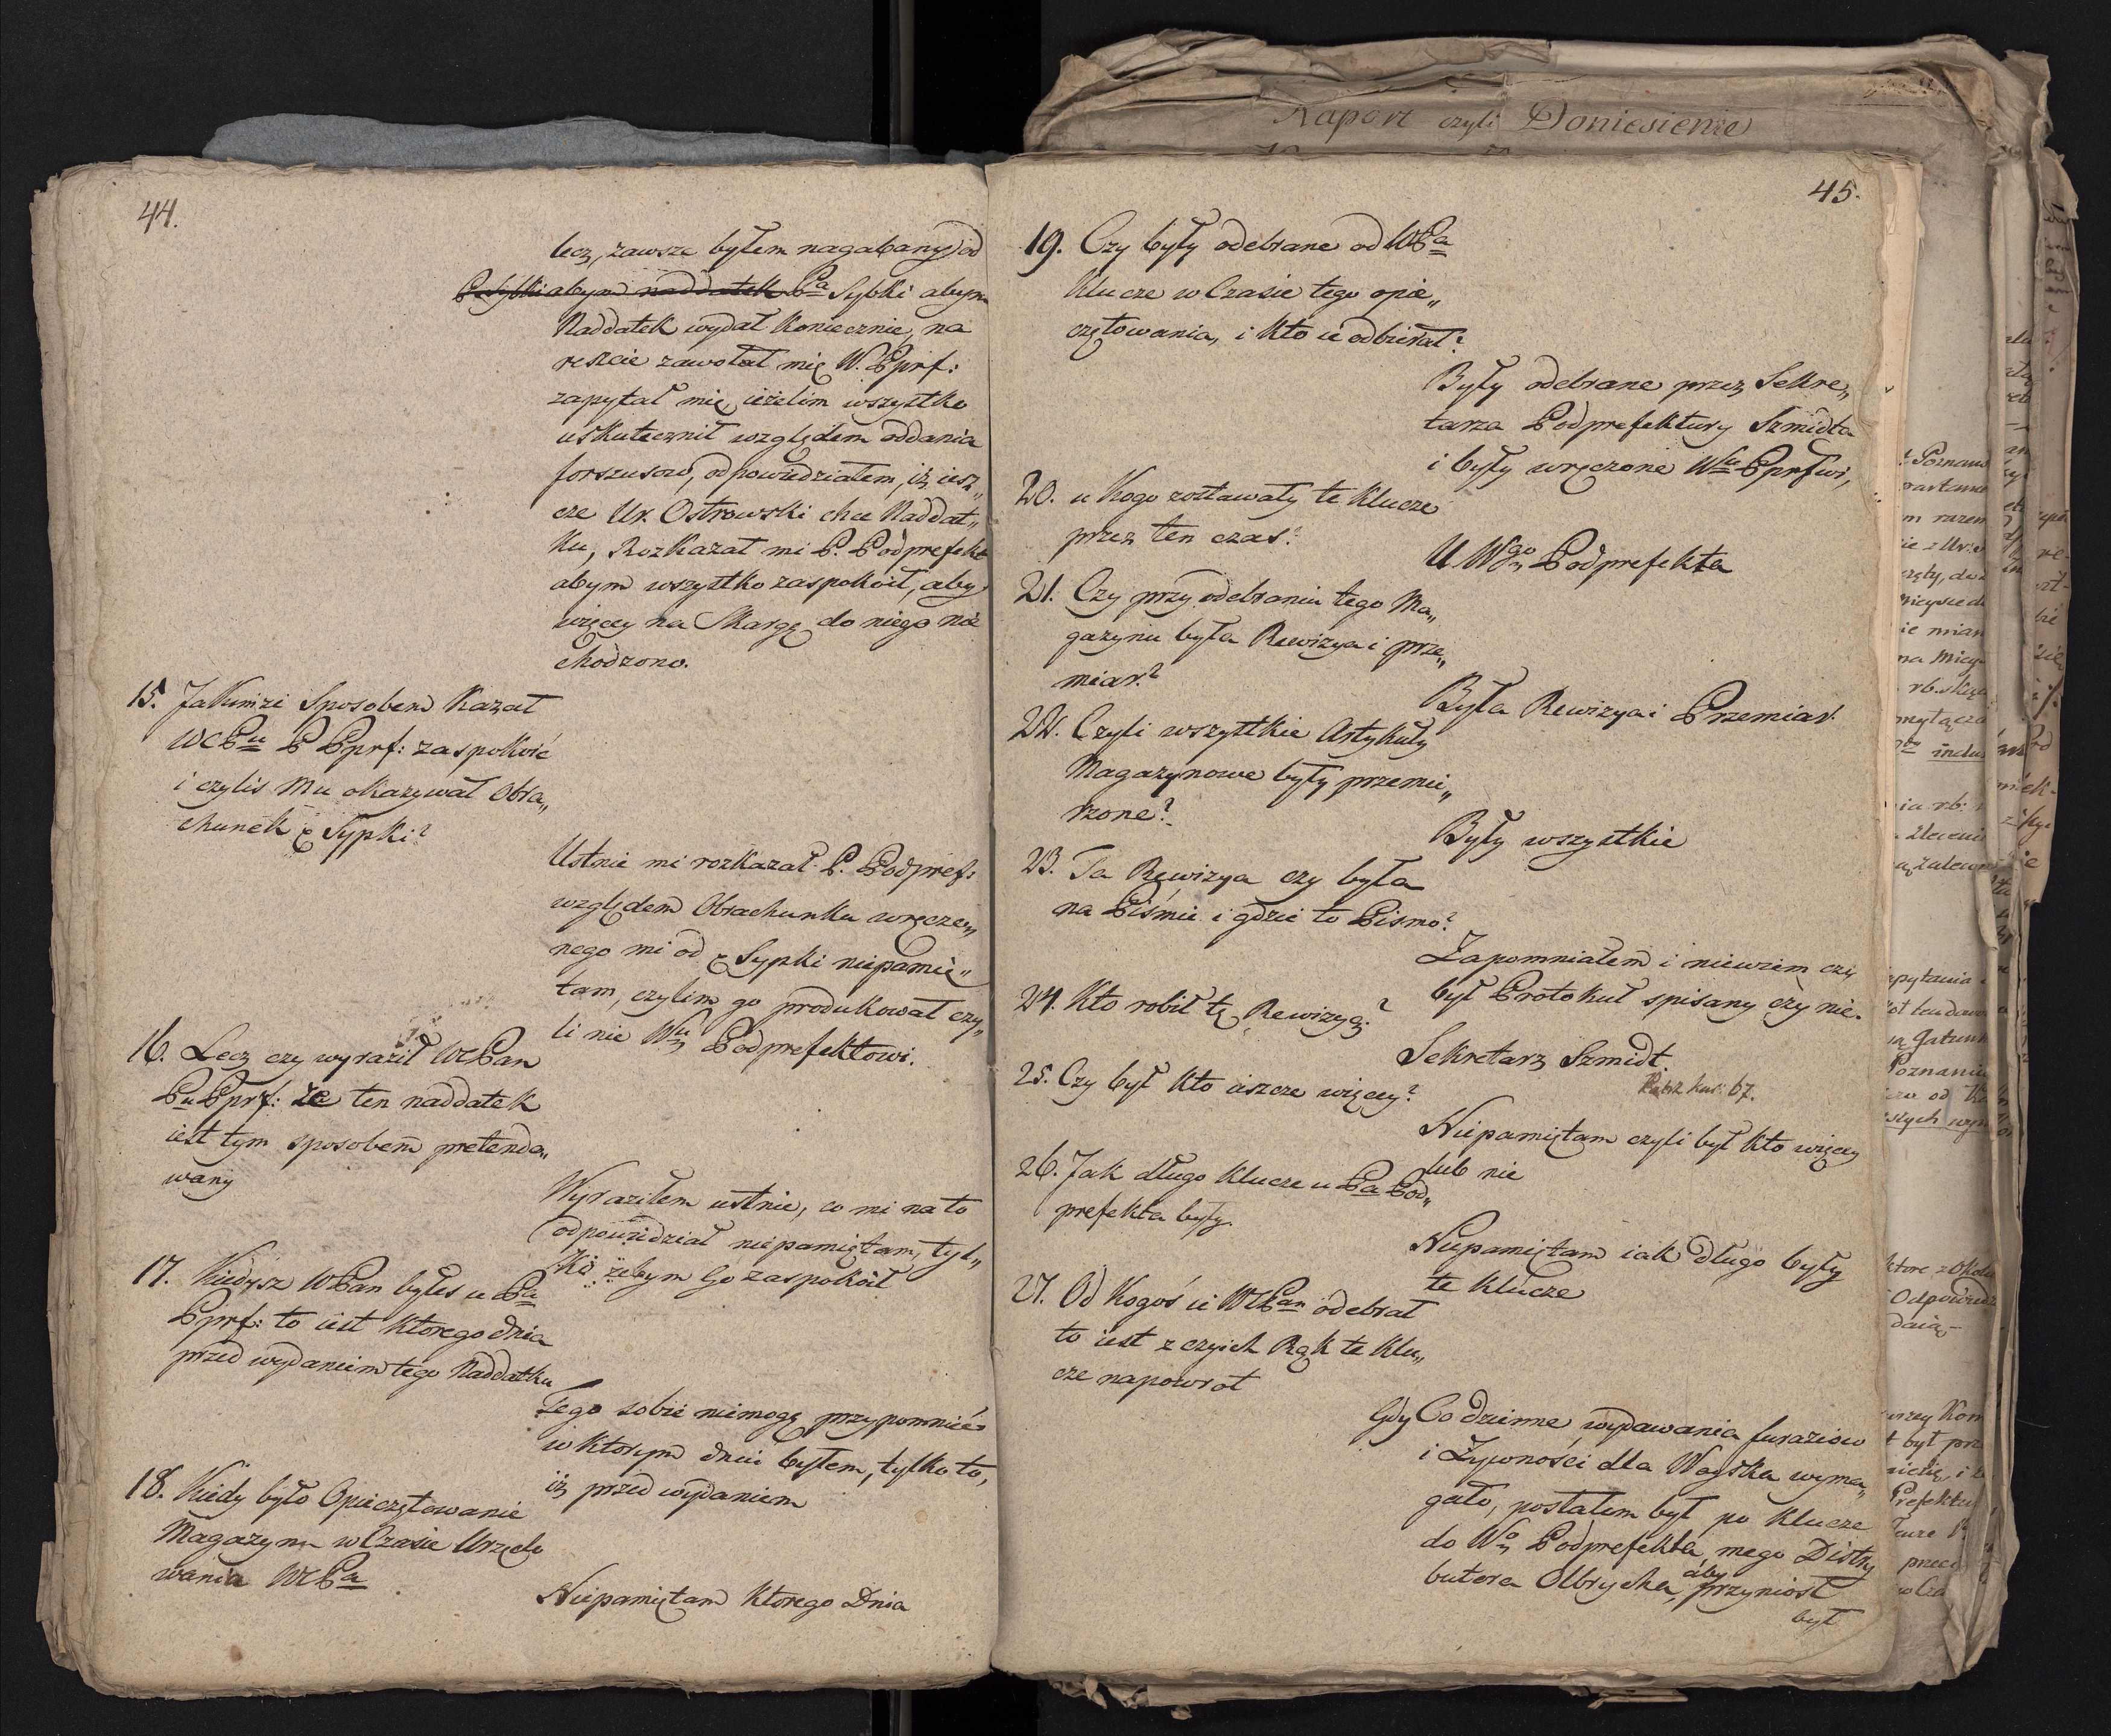 44.
lecz, zawsze byłem nagabany od
P. Sypki abym naddatek Pa Sypki abym
Naddatek wydał koniecznie, na
reszcie zawołał mię W. Pprf:
zapytał mię ieżelim wszystko
uskutecznił względem oddania
forszusow, odpowiedziałem, iż iesz„
cze Ur. Ostrowski chce Naddat„
ku, Rozkazał mi P. Podprefekt
abym wszystko zaspokoił, aby
więcey na Skargę do niego nie
chodzono.
15. Jakimże Sposobem Kazał
WCPu P Pprf: zaspokoić
i czyliś Mu okazywał Obra„
chunek Sypki?
Ustnie mi rozkazał P. Podpref:
względem Obrachunku wręczo„
nego mi od Sypki niepamię„
tam, czylim go produkował czy„
li nie Wu Podprefektowi.
16. Lecz czy wyraził WCPan
Pu Pprf: że ten naddatek
iest tym sposobem pretendo„
wany
Wyraziłem ustnie, co mi na to
odpowiedział niepamiętam, tyl„
ko żebym Go zaspokoił
17. Kiedysz WPan byłeś u Pa
Pprf: to iest ktorego dnia
przed wydaniem tego Naddatku
Tego sobie niemogę przypomnieć
w ktorym dniu byłem, tylko to,
iż przed wydaniem
18. Kiedy było Opieczętowanie
Magazynu w Czasie Urzędo
wania WCPa
Niepamiętam ktorego Dnia
Raport czyli Doniesienie
45.
19. Czy były odebrane od WCPa
Klucze w Czasie tego opie„
czętowania, i kto ie odbierał?
Były odebrane przez Sekre„
tarza Podprefektury Szmidta
i były wręczone Wu Pprfwi,
20. u kogo zostawały te Klucze
przez ten czas?
U Wgo Podprefekta
21. Czy przy odebraniu tego Ma„
gazynu była Rewizya i prze„
miar?
Była Rewizya i Przemiar.
22. Czyli wszystkie Artykuły
Magazynowe były przemie„
rzone?
Były wszystkie
23. Ta Rewizya czy była
na Piśmie i gdzie to Pismo?
Zapomniałem i niewiem czy
był Protokuł spisany czy nie.
24. Kto robił tę Rewizyą?
Sekretarz Szmidt.
67.
25. Czy był kto ieszcze więcey?
Niepamiętam czyli był kto więcey
lub nie
26. Jak długo klucze u Pa Pod„
prefekta były.
Niepamiętam iak długo były
te klucze
27. Od kogoś ie WCPan odebrał
to iest z czyich Rąk te klu„
cze napowrot
Gdy Codzienne wydawania furażow
i Żywności dla Woyska wyma„
gało, posłałem był po klucze
do Wo Podprefekta mego Distry
butora Olbrycha, aby przyniosł
był